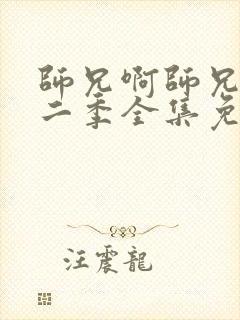 師兄啊師兄
二季全集免
汪震龍